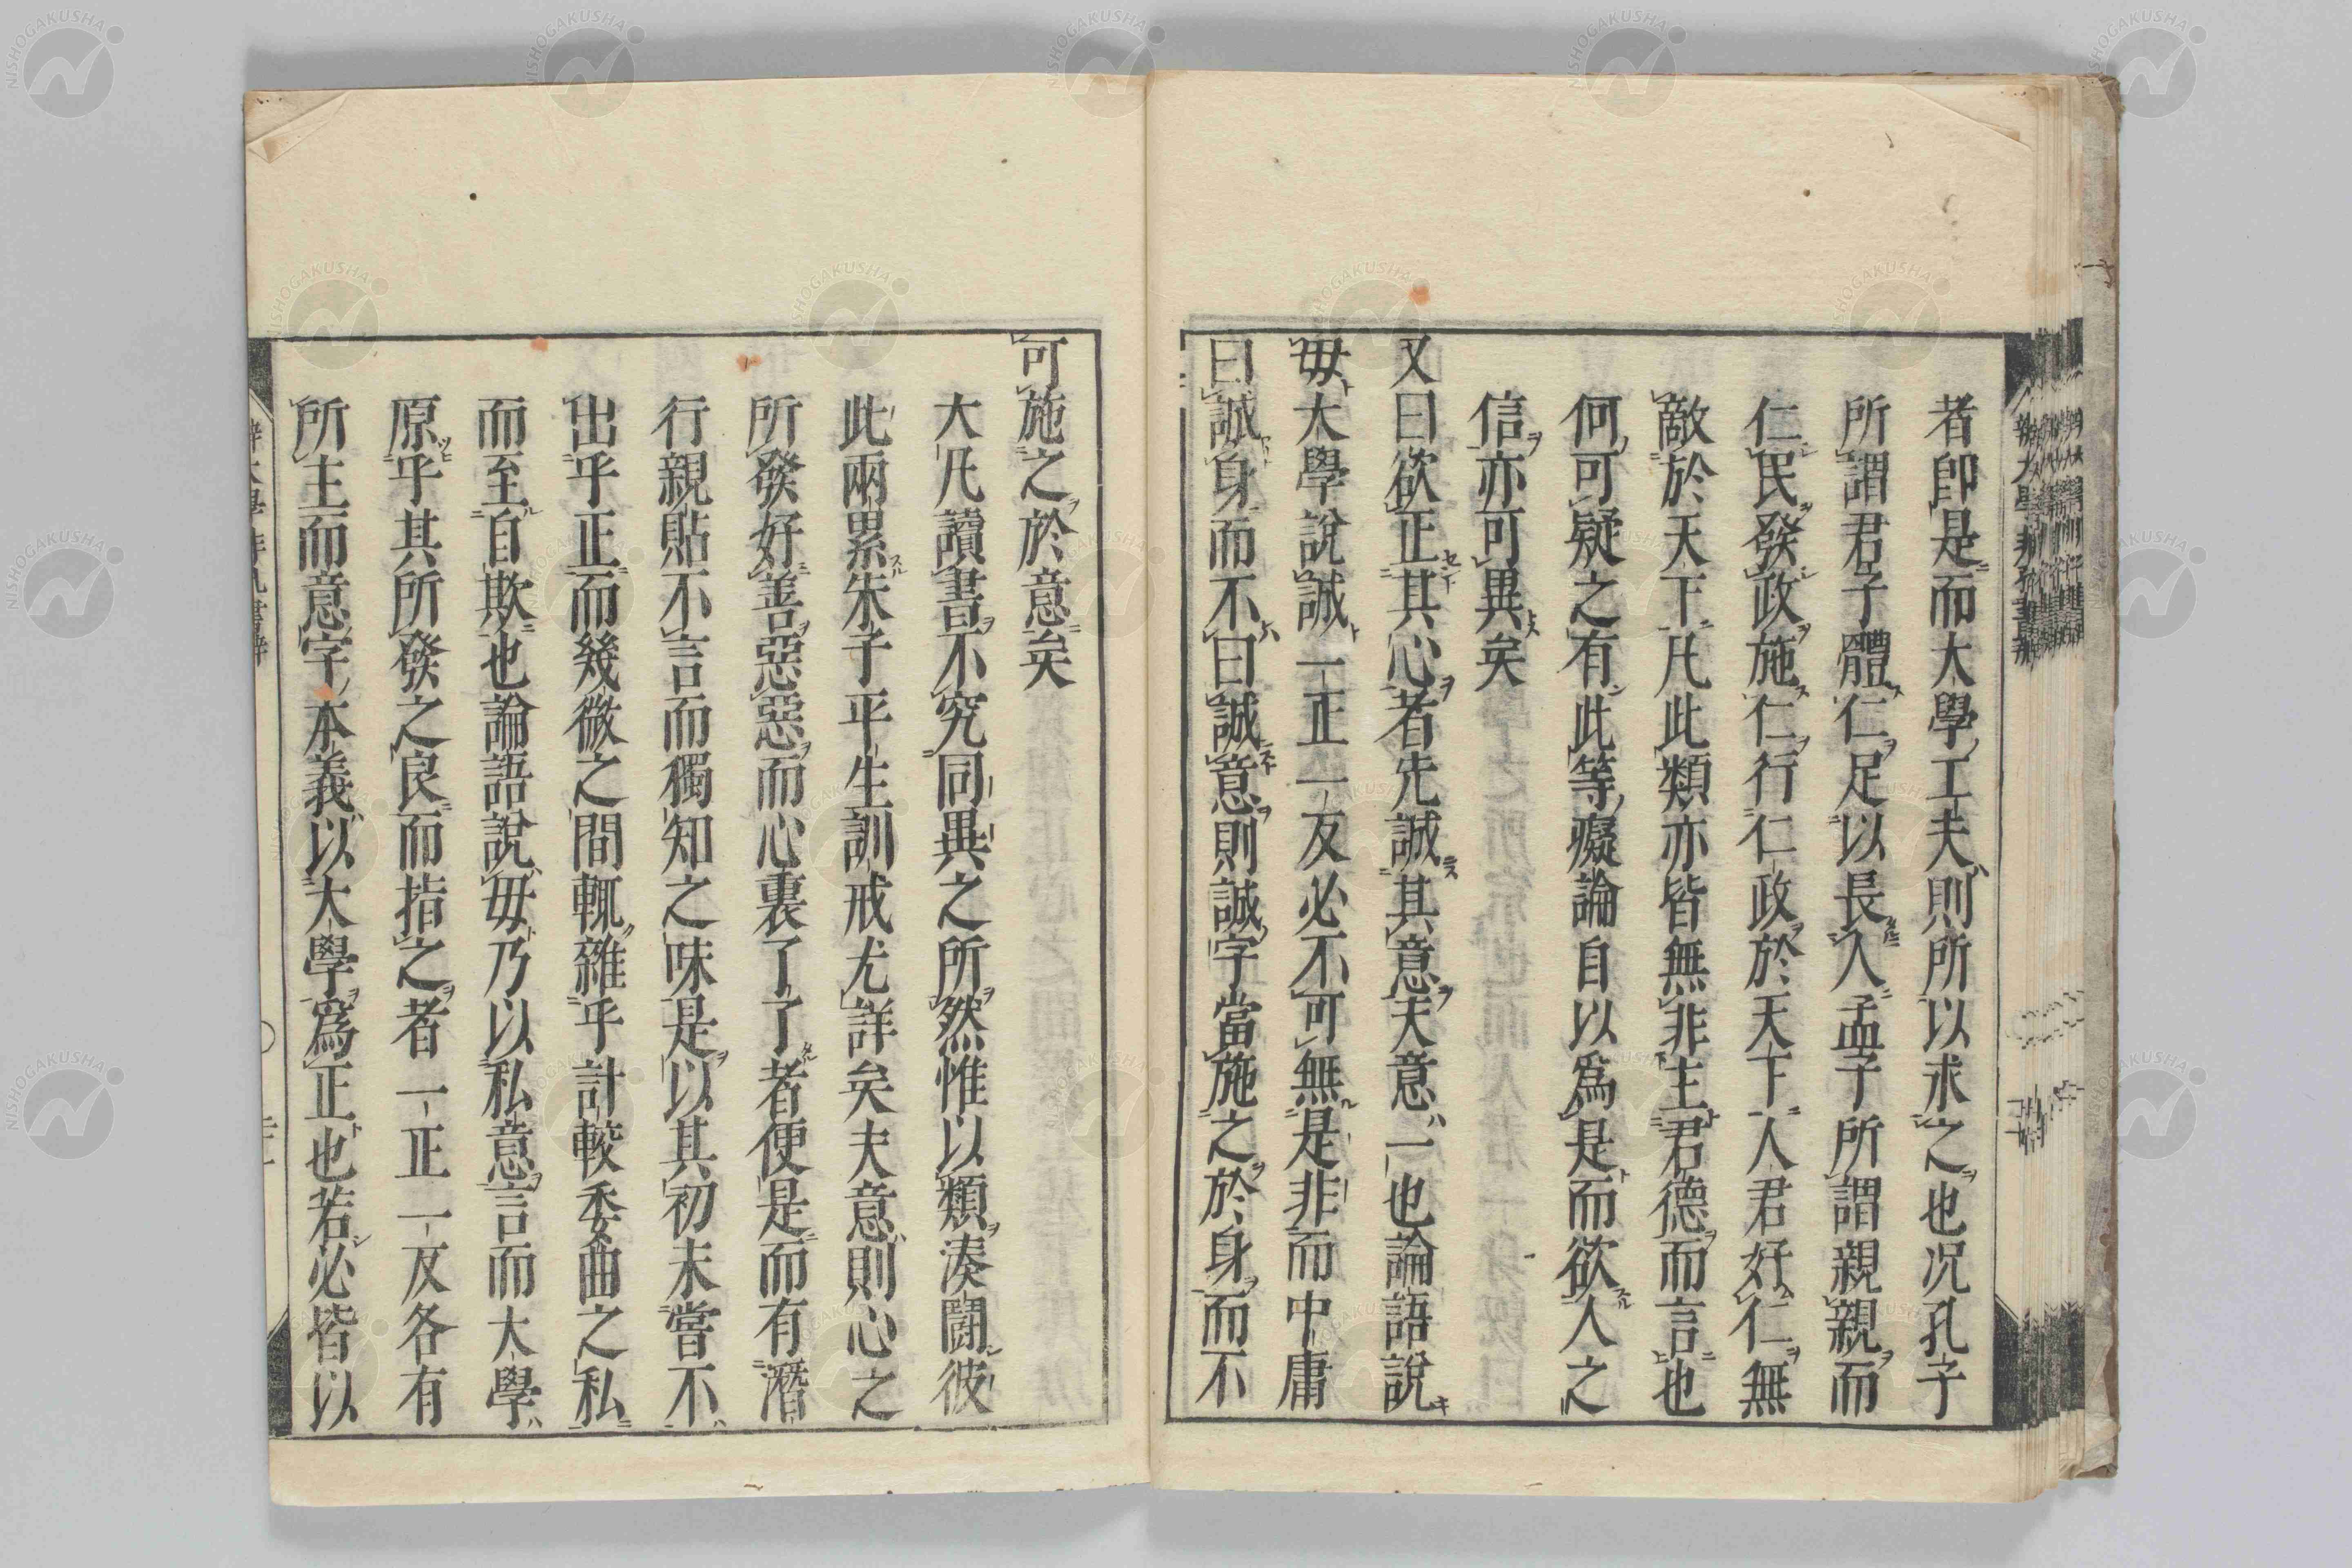 者即是而大學工夫則所以求之也况孔子
所謂君子體仁足以長人孟子所謂親親而
仁民發政施仁行仁政於天下人君好仁無
敵於天下凡此類亦皆無非主君德而言也
何可疑之有此等癡論自以爲是而欲人之
信亦可異矣
又曰欲正其心者先誠其意夫意一也論語說
毋大學說誠一正一反必不可無是非而中庸
曰誠身而不曰誠意則誠字當施之於身而不
可施之於意矣
大凡讀書不究同異之所然惟以類湊鬭彼
此兩累朱子平生訓戒尤詳矣夫意則心之
所發好善惡惡而心裏了了者便是而有潛
行親貼不言而獨知之味是以其初未嘗不
出乎正而幾微之間輒雜乎計較委曲之私
而至自欺也論語說毋乃以私意言而大學
原乎其所發之良而指之者一正一反各有
所主而意字本義以大學爲正也若必皆以
NISHOGAKUSHA